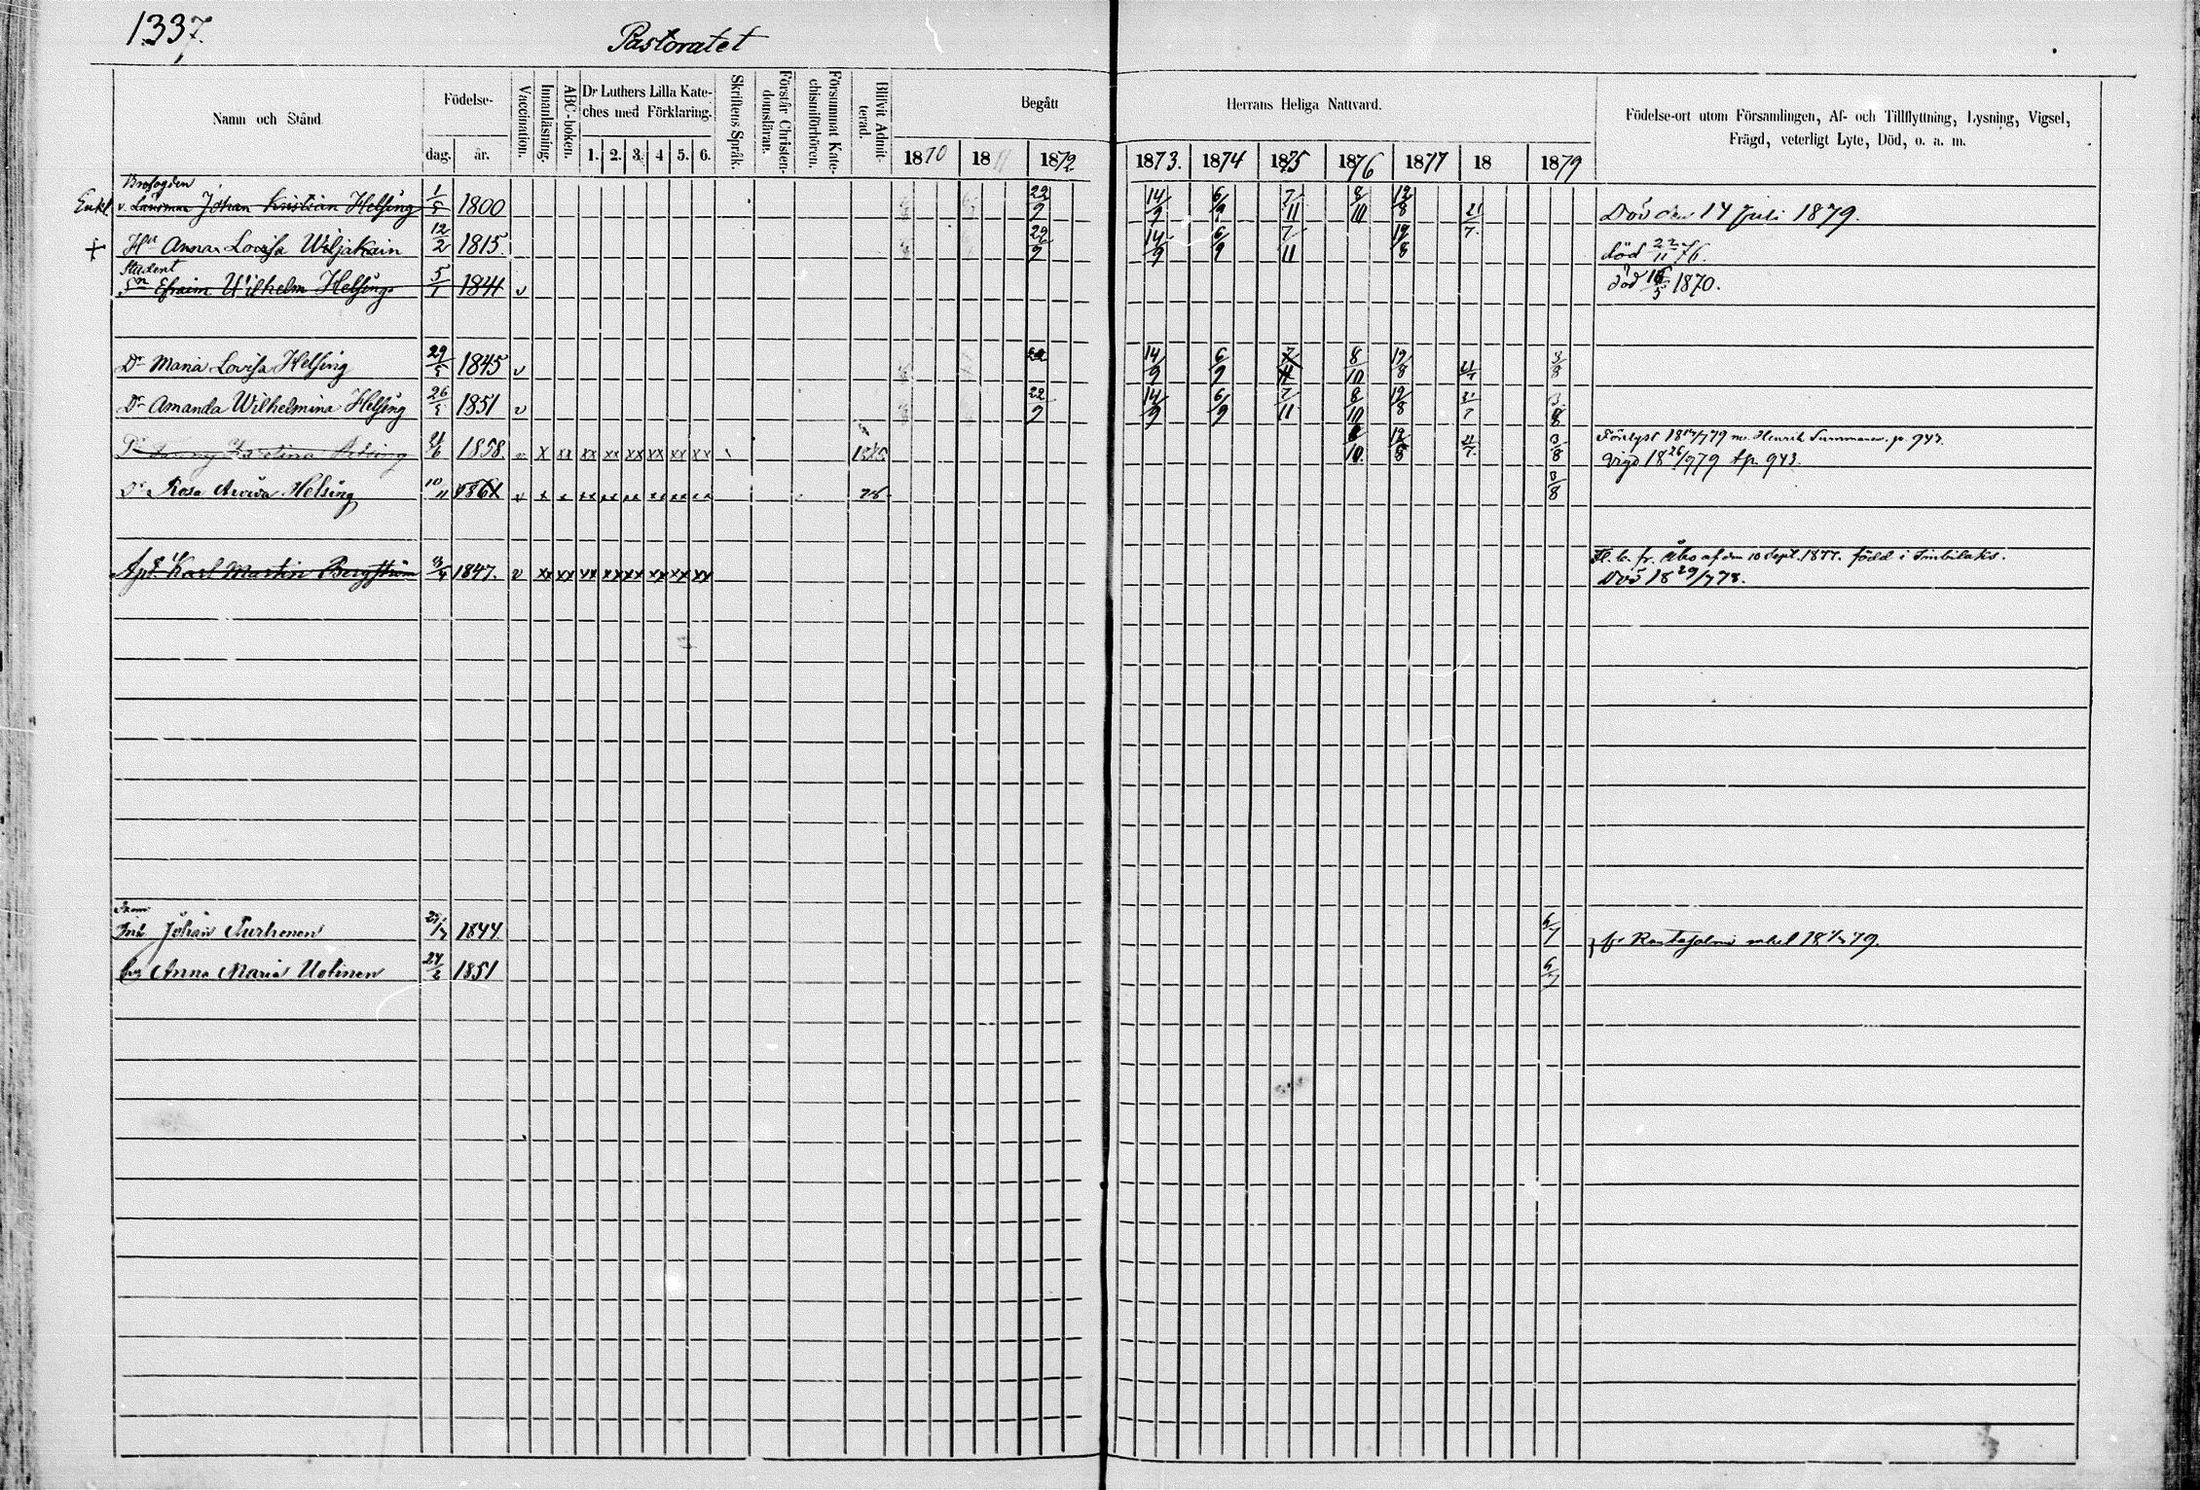 1337.
Pastoratet
Namn och Stånd.
Födelse-
dag. år.
Vaccination.
Innanläsning.
ABC-boken.
Dr Luthers Lilla Kate-
ches med Förklaring.
1. 2. 3. 4 5. 6.
Skriftens Språk.
Förstår Christen-
domsläran.
Försummat Kate-
chismiförhören.
Blifvit Admit-
terad.
Begått
1870 18 1872
Herrans Heliga Nattvard.
1873. 1874 1875 1876 1877 18 1879
Födelse-ort utom Församlingen, Af- och Tillflyttning, Lysning, Vigsel,
Frägd, veterligt Lyte, Död, o. a. m.
Enkl v. Länsman Johan Kristian Helsing 1/5 1800 22/9 14/9 6/9 7/11 8/10 12/8 21/7. Död den 17 Juli 1879.
+ Hu Anna Lovisa Wiljakain 12/2 1815. 22/9 14/9 6/9 7/11 12/8 död 22/11 76.
Student
Sn Efraim Wilhelm Helsing 5/1 1844 v död 1870.
Dr Maria Lovisa Helsing 29/5 1845 v 22 14/9 6/9 7/11 8/10 12/8 21/7 3/8
Dr Amanda Wilhelmina Helsing 26/5 1851 v 22/9 14/9 6/9 7/11 8/10 12/8 21/7 3/8
21/6 1858. x xx xx xx xx xx xx xx 8/10 12/8 21/7 3/8 m. Henrik p. 943.
Vigd 18 26/9 79 943.
Dr Rosa Helsing 10/11 1861 v 78 3/8
Karl Martin Bergström 1847. v xx xx xx xx xx xx xx xx fr. Åbo af den 10 Sept. 1877. född i
Död 18 29/7 78.
Johan Turhonen 1844 6/7 fr 79.
Anna Maria Uotinen 24/2 1851 6/7